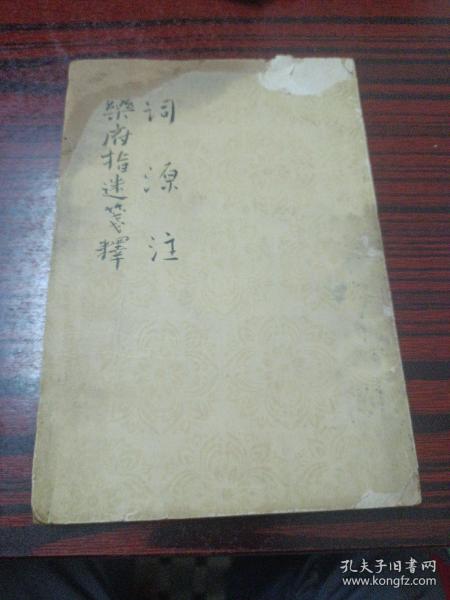 詞源注
樂府指迷箋釋
孔夫子旧书网
www.kongfz.com